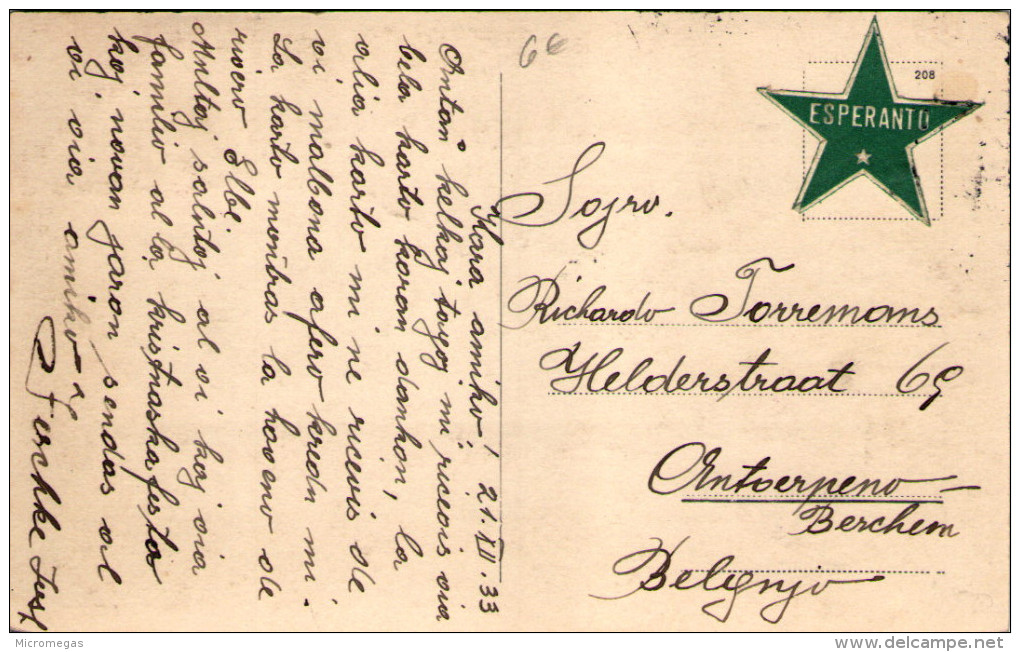 Kara amiko! 21.XII.33
Antaŭ kelkaj tagoj mi ricevis via
bela karto koran dankon, la
alia karto mi ne ricevis de
vi malbona afero kredu mi
La karto montras la haveno de
rivero Elbe.
Multaj salutoj al vi kaj via
familio al la kristnaska festo
kaj novan jaron sendas al
vi via amiko
6e
208
ESPERANTO
Sojro.
Richardo Torremans
Helderstraat 69
Antverpeno -
Berchem
Belgujo
Micromegas
www.delcampe.net